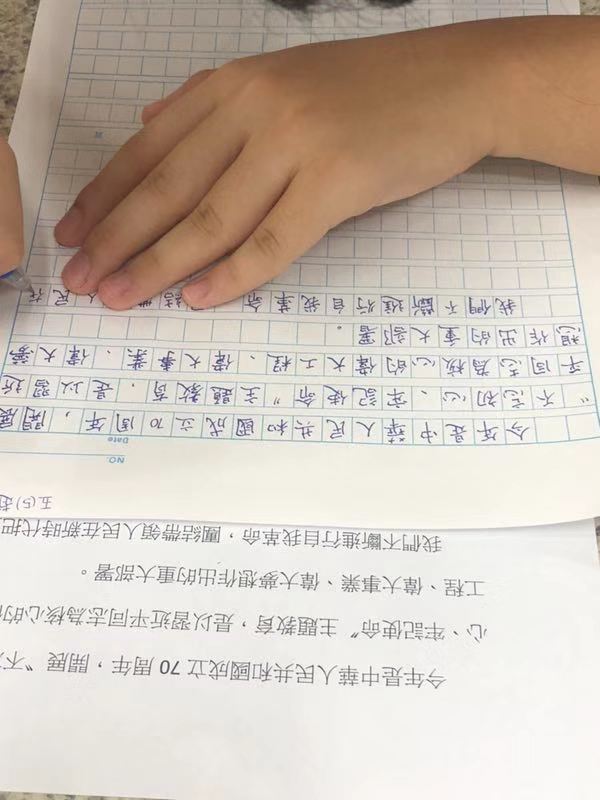 今年是中華人民共和國成立 70 周年,開展〝不
心、牢記使命〞主題教育,是以習近平同志為核心的
工程、偉大事業、偉大夢想作出的重大部署。
我們不斷進行自我革命,團結帶領人民在新時代把
五(5)
NO.
Date
今年是中華人民共和國成立70周年,開展
“不忘初心、牢記使命”主題教育,是以習近
平同志為核心的偉大工程、偉大事業、偉大夢
想作出的重大部署。
我們不斷進行自我革命 結帶 人民在